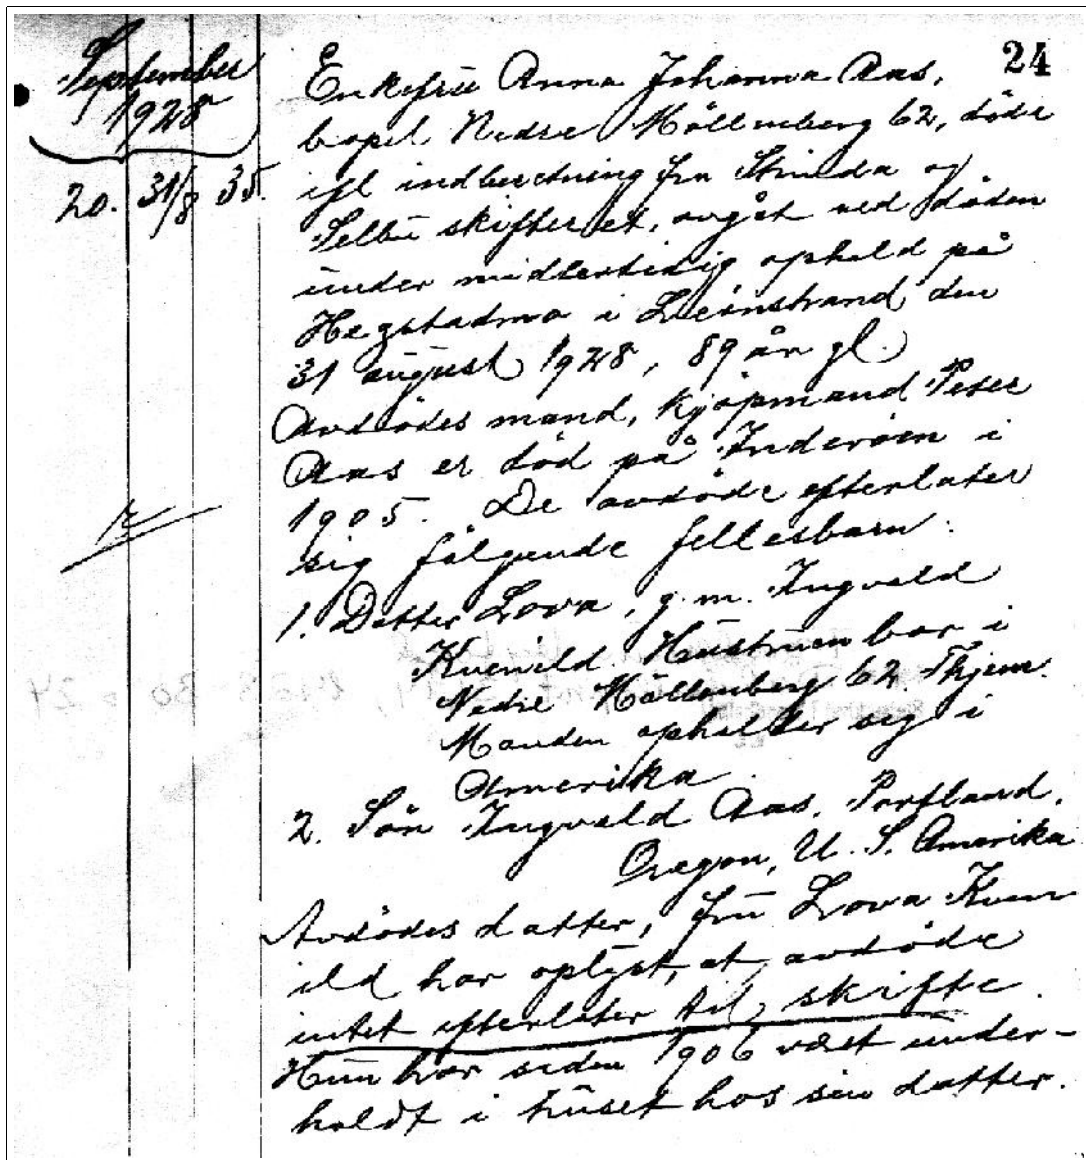 24
September
1928
20. 31/8 35.
Enkefrü Anna Johanna Aas,
bopel Nedre Möllenberg 62, döde
ifl indberetning fra Strinda og
Selbü skifteret, avgåt ved döden
ünder midlertidig ophold på
Hegstadmo i Leinstrand den
31 aügust 1928, 89 år gl.
Avdödes mand, kjöpmand Peter
Aas er död på Inderöen i
1905. De avdöde efterlater
sig fölgende fellesbarn:
1. Datter Lova, g.m. Ingvald
Kvenild. Hüstrüen bor i
Nedre Möllenberg 62. Thjem.
Manden opholder seg i
Amerika.
2. Sön Ingvald Aas. Portland.
Oregon, U. S. Amerika
Avdödes datter, frü Lova Kven
ild har oplyst, at avdöde
intet efterlater til skifte.
Hün har siden 1906 vært ünder-
holdt i hüset hos sin datter.